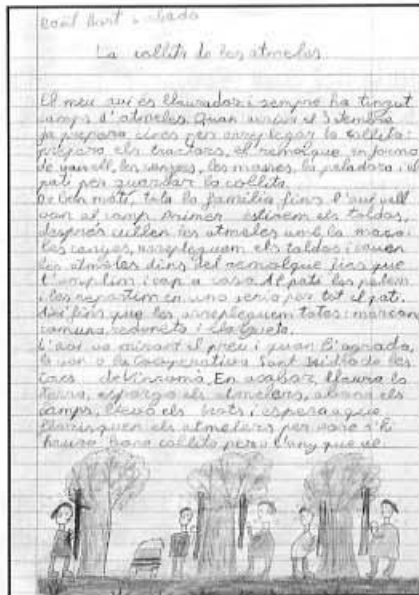 La collita de les atmeles
El meu avi és llaurador i sempre ha tingut
camps d'atmeles. Quan arriba el Setembre
ja prepara eines per arreplegar la collita:
prepara els tractors, el remolque en forma
de vaixell, les canyes, les masses, la peladora i el
pati per guardar la collita.
De bon matí, tota la familia fins l'auell
van al camp. Primer estirem els taldos,
després cullen les atmeles amb la maça i
les canyes, arrepleguem els taldos i
les atmeles dins del remolque fins que
l'omplim i cap a casa. Al pati les pelem
i les repartim en una per tot el pati.
Així fins que les arrepleguem totes: marcona
comuna, redoneta i llargueta.
L'avi va mirant el preu i quan li agrada,
la ven a la Cooperativa Sant Isidro de les
Coves de Vinromà. En acabar, llaura la
terra, esporga els atmelers, abona els
camps, lleva els brots i espera a que
floreixquen els atmelers per vore s'hi
haurà bona collita per a l'any que ve.